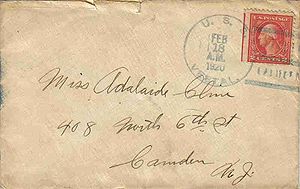 U.S.
FEB
18
A.M.
1920
U.S. POSTAGE
2 CENTS 2
Miss Adalaide Cline
408 North 6th st
Camden
N.J.